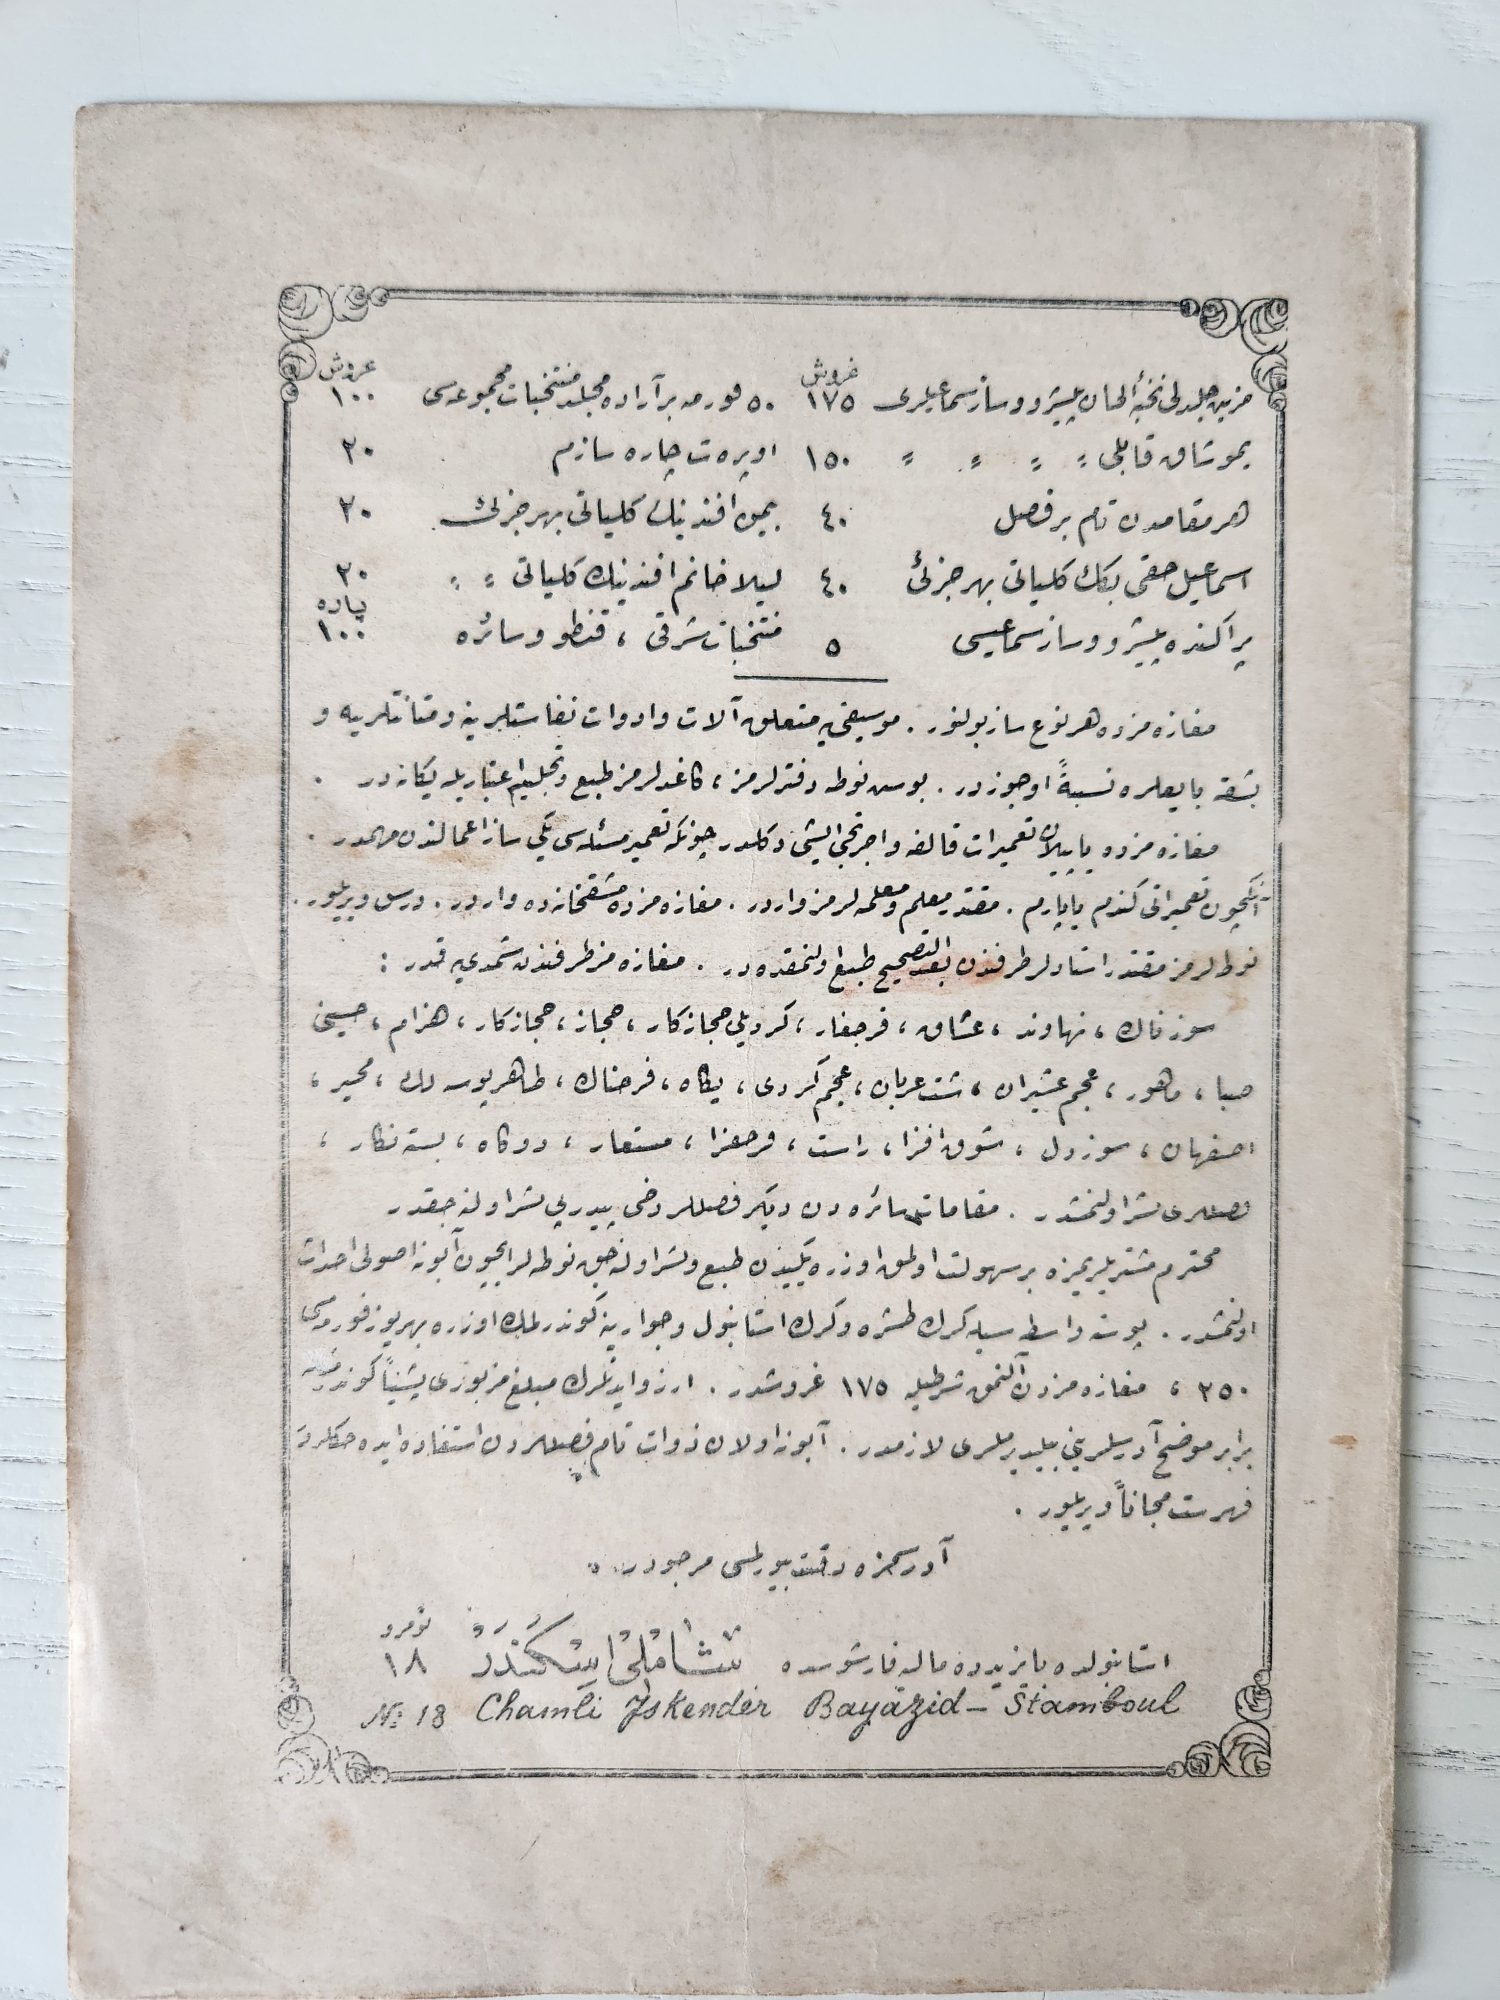 غروش غروش
مزین جلدلی نخبهٔ ألحان پیشرو و ساز سماعیلری ١٧٥ ٥٠ فورمه بر آراده مجلد منتخبات مجموعه‌سی ١٠٠
یموشاق قابلی 〃 〃 〃 〃 ١٥٠ اوپره‌ت چاره سازم ٢٠
هر مقامدن تام بر فصل ٤٠ بمن افندینك كلیاتی بهر جزئی ٢٠
اسماعیل حقی بكك كلیاتی بهر جزئی ٤٠ لیلا خانم افندینك كلیاتی 〃 〃 ٢٠
پاره
پراكنده پیشرو و ساز سماعیسی ٥ منتخبات شرقی ، قنطو و سائره ١٠٠
مغازه‌مزده هر نوع ساز بولنور . موسیقی‌یه متعلق آلات و ادوات نفاستلرینه و متانتلرینه و
بشقه یایعلره نسبةً اوجوزدر . بوس نوطه دفترلرمز ، كاغدلرمز طبع و تجلید اعتباریله یكانه‌در .
مغازه‌مزده یاپیلان تعمیرات قالفه و اجرتجی ایشی دكلدر چونكه تعمیر مسئله‌سی یكی ساز اعمالندن مهمدر .
آنكچون تعمیراتی كندم یاپارم . مقتدر معلم و معلمه‌لرمز واردر . مغازه‌مزده مشقخانه‌ده واردر . درس ویریلیور .
نوطه‌لرمز مقتدر استادلر طرفندن بعد التصحیح طبع اولنمقده‌در . مغازه‌مز طرفندن شمدی‌یه قدر :
سوزناك ، نهاوند ، عشاق ، قرجغار ، كردیلی حجازكار ، حجاز ، حجازكار ، هزام ، حسینی
صبا ، ماهور ، عجم عشیران ، شت عربان ، عجم كردی ، یكاه ، فرحناك ، طاهر بوسه‌لك ، محیر ،
اصفهان ، سوزدل ، شوق افزا ، راست ، فرحفزا ، مستعار ، دوكاه ، بسته نكار ،
فصللری نشر اولنمشدر . مقامات سائره‌دن دیكر فصللر دخی پیدرپی نشر اولنه‌جقدر
محترم مشتریلریمزه بر سهولت اولمق اوزره یكیدن طبع و نشر اولنه‌جق نوطه‌لر ایچون آبونه اصولی احداث
اولنمشدر . پوسته واسطه‌سیله كرك طشره و كرك استانبول و جوارینه كوندرلمك اوزره بهر یوز فورمه‌سی
٢٥٠ ، مغازه‌مزدن آلنمق شرطیله ١٧٥ غروشدر . ارزو ایدنلرك مبلغ مزبوری پشیناً كوندرمكله
برابر موضح آدرسلرینی بیلدیرملری لازمدر . آبونه اولان ذوات تام فصللردن استفاده ایده‌جكلردر
فهرست مجاناً ویریلیور .
آدرسمزه دقت بیورلمسی مرجودر .
نومرو
استانبولده بایزیدده مالیه قارشوسنده شاملی اسكندر ١٨
№ 18 Chamli Iskender Bayazid – Stamboul